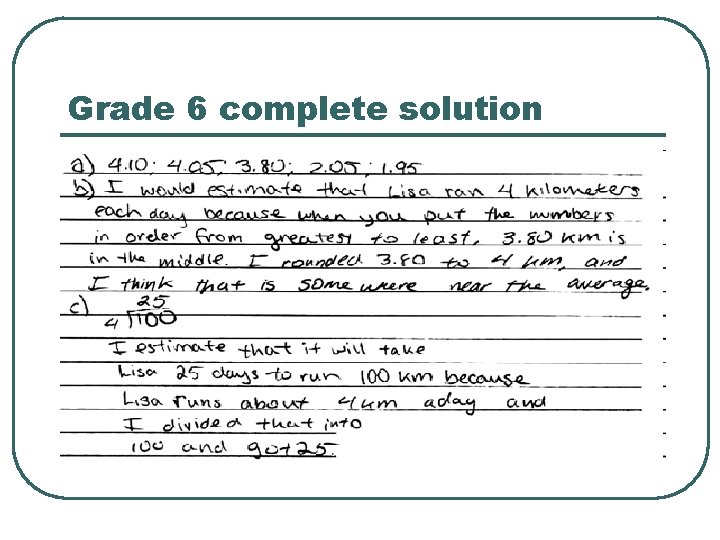 Grade 6 complete solution
a) 4.10; 4.05; 3.80; 2.05; 1.95
b) I would estimate that Lisa ran 4 kilometers
each day because when you put the numbers
in order from greatest to least, 3.80 km is
in the middle. I rounded 3.80 to 4 km, and
I think that is somewhere near the average.
c) 25
4 100
I estimate that it will take
Lisa 25 days to run 100 km because
Lisa runs about 4 km a day and
I divided that into
100 and got 25.